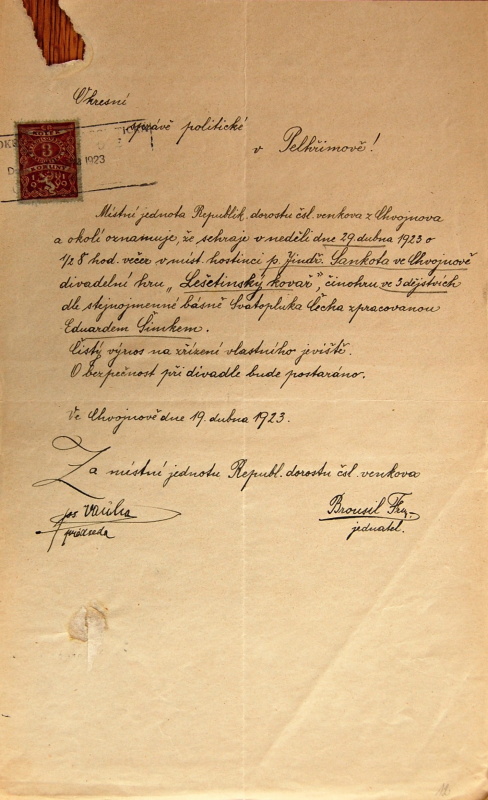 Okresní
správě politické
v Pelhřimově!
1923
3
Místní jednota Republik. dorostu čsl. venkova z Chvojnova
a okolí oznamuje, že sehraje v neděli dne 29. dubna 1923 o
1/2 8 hod. večer v míst. hostinci p. Jindř. Sankota ve Chvojnově
divadelní hru „Lešetinský kovář", činohru ve 3 dějstvích
dle stejnojmenné básně Svatopluka Čecha zpracovanou
Eduardem Šimkem.
Čistý výnos na zřízení vlastního jeviště.
O bezpečnost při divadle bude postaráno.
Ve Chvojnově dne 19. dubna 1923.
Za místní jednotu Republ. dorostu čsl. venkova
Jos. Brousil Fr.
předseda jednatel.